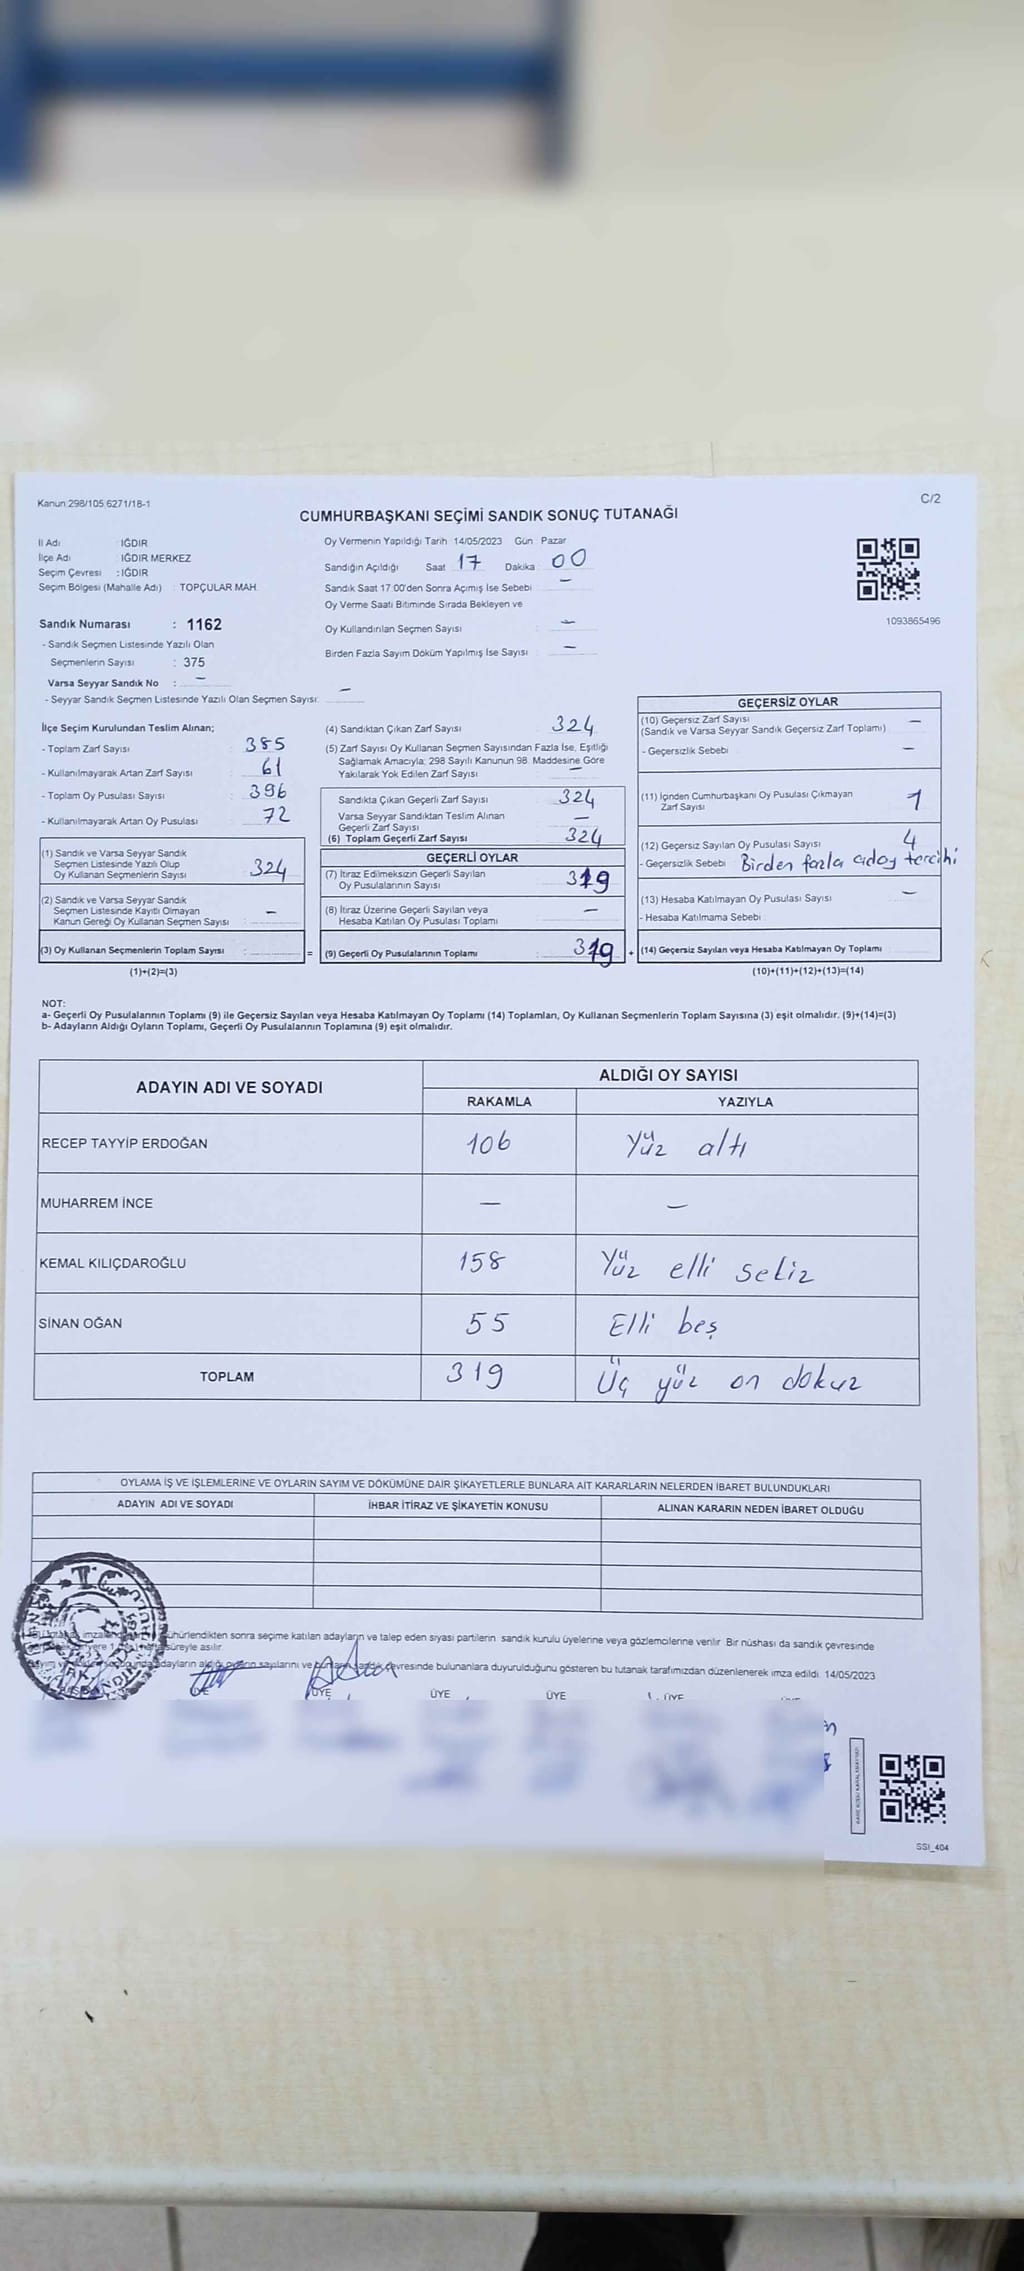 Kanun:298/105,6271/18-1
C/2
CUMHURBAŞKANI SEÇİMİ SANDIK SONUÇ TUTANAĞI
İl Adı : IĞDIR
İlçe Adı : IĞDIR MERKEZ
Seçim Çevresi : IĞDIR
Seçim Bölgesi (Mahalle Adı) : TOPÇULAR MAH.
Sandık Numarası : 1162
- Sandık Seçmen Listesinde Yazılı Olan
Seçmenlerin Sayısı : 375
Varsa Seyyar Sandık No : —
- Seyyar Sandık Seçmen Listesinde Yazılı Olan Seçmen Sayısı: —
Oy Vermenin Yapıldığı Tarih : 14/05/2023 Gün : Pazar
Sandığın Açıldığı Saat : 17 Dakika : 00
Sandık Saat 17:00'den Sonra Açımış İse Sebebi : —
Oy Verme Saati Bitiminde Sırada Bekleyen ve
Oy Kullandırılan Seçmen Sayısı : —
Birden Fazla Sayım Döküm Yapılmış İse Sayısı : —
1093865496
İlçe Seçim Kurulundan Teslim Alınan;
- Toplam Zarf Sayısı : 385
- Kullanılmayarak Artan Zarf Sayısı : 61
- Toplam Oy Pusulası Sayısı : 396
- Kullanılmayarak Artan Oy Pusulası : 72
(1) Sandık ve Varsa Seyyar Sandık
Seçmen Listesinde Yazılı Olup
Oy Kullanan Seçmenlerin Sayısı : 324
(2) Sandık ve Varsa Seyyar Sandık
Seçmen Listesinde Kayıtlı Olmayan
Kanun Gereği Oy Kullanan Seçmen Sayısı : —
(3) Oy Kullanan Seçmenlerin Toplam Sayısı :
(1)+(2)=(3)
(4) Sandıktan Çıkan Zarf Sayısı : 324
(5) Zarf Sayısı Oy Kullanan Seçmen Sayısından Fazla İse, Eşitliği
Sağlamak Amacıyla; 298 Sayılı Kanunun 98. Maddesine Göre
Yakılarak Yok Edilen Zarf Sayısı : —
Sandıkta Çıkan Geçerli Zarf Sayısı : 324
Varsa Seyyar Sandıktan Teslim Alınan
Geçerli Zarf Sayısı : —
(6) Toplam Geçerli Zarf Sayısı : 324
GEÇERLİ OYLAR
(7) İtiraz Edilmeksizin Geçerli Sayılan
Oy Pusulalarının Sayısı : 319
(8) İtiraz Üzerine Geçerli Sayılan veya
Hesaba Katılan Oy Pusulası Toplamı : —
= (9) Geçerli Oy Pusulalarının Toplamı : 319 +
GEÇERSİZ OYLAR
(10) Geçersiz Zarf Sayısı : —
(Sandık ve Varsa Seyyar Sandık Geçersiz Zarf Toplamı)
- Geçersizlik Sebebi : —
(11) İçinden Cumhurbaşkanı Oy Pusulası Çıkmayan
Zarf Sayısı : 1
(12) Geçersiz Sayılan Oy Pusulası Sayısı : 4
- Geçersizlik Sebebi : Birden fazla aday tercihi
(13) Hesaba Katılmayan Oy Pusulası Sayısı : —
- Hesaba Katılmama Sebebi :
(14) Geçersiz Sayılan veya Hesaba Katılmayan Oy Toplamı :
(10)+(11)+(12)+(13)=(14)
NOT:
a- Geçerli Oy Pusulalarının Toplamı (9) ile Geçersiz Sayılan veya Hesaba Katılmayan Oy Toplamı (14) Toplamları, Oy Kullanan Seçmenlerin Toplam Sayısına (3) eşit olmalıdır. (9)+(14)=(3)
b- Adayların Aldığı Oyların Toplamı, Geçerli Oy Pusulalarının Toplamına (9) eşit olmalıdır.
ADAYIN ADI VE SOYADI
ALDIĞI OY SAYISI
RAKAMLA YAZIYLA
RECEP TAYYİP ERDOĞAN 106 Yüz altı
MUHARREM İNCE — —
KEMAL KILIÇDAROĞLU 158 Yüz elli sekiz
SİNAN OĞAN 55 Elli beş
TOPLAM 319 Üç yüz on dokuz
OYLAMA İŞ VE İŞLEMLERİNE VE OYLARIN SAYIM VE DÖKÜMÜNE DAİR ŞİKAYETLERLE BUNLARA AİT KARARLARIN NELERDEN İBARET BULUNDUKLARI
ADAYIN ADI VE SOYADI İHBAR İTİRAZ VE ŞİKAYETİN KONUSU ALINAN KARARIN NEDEN İBARET OLDUĞU
T.C.
mühürlendikten sonra seçime katılan adayların ve talep eden siyasi partilerin sandık kurulu üyelerine veya gözlemcilerine verilir. Bir nüshası da sandık çevresinde
süreyle asılır.
adayların aldığı oyların sayılarını ve sandık çevresinde bulunanlara duyurulduğunu gösteren bu tutanak tarafımızdan düzenlenerek imza edildi. 14/05/2023
ÜYE ÜYE ÜYE ÜYE ÜYE
SSI_404